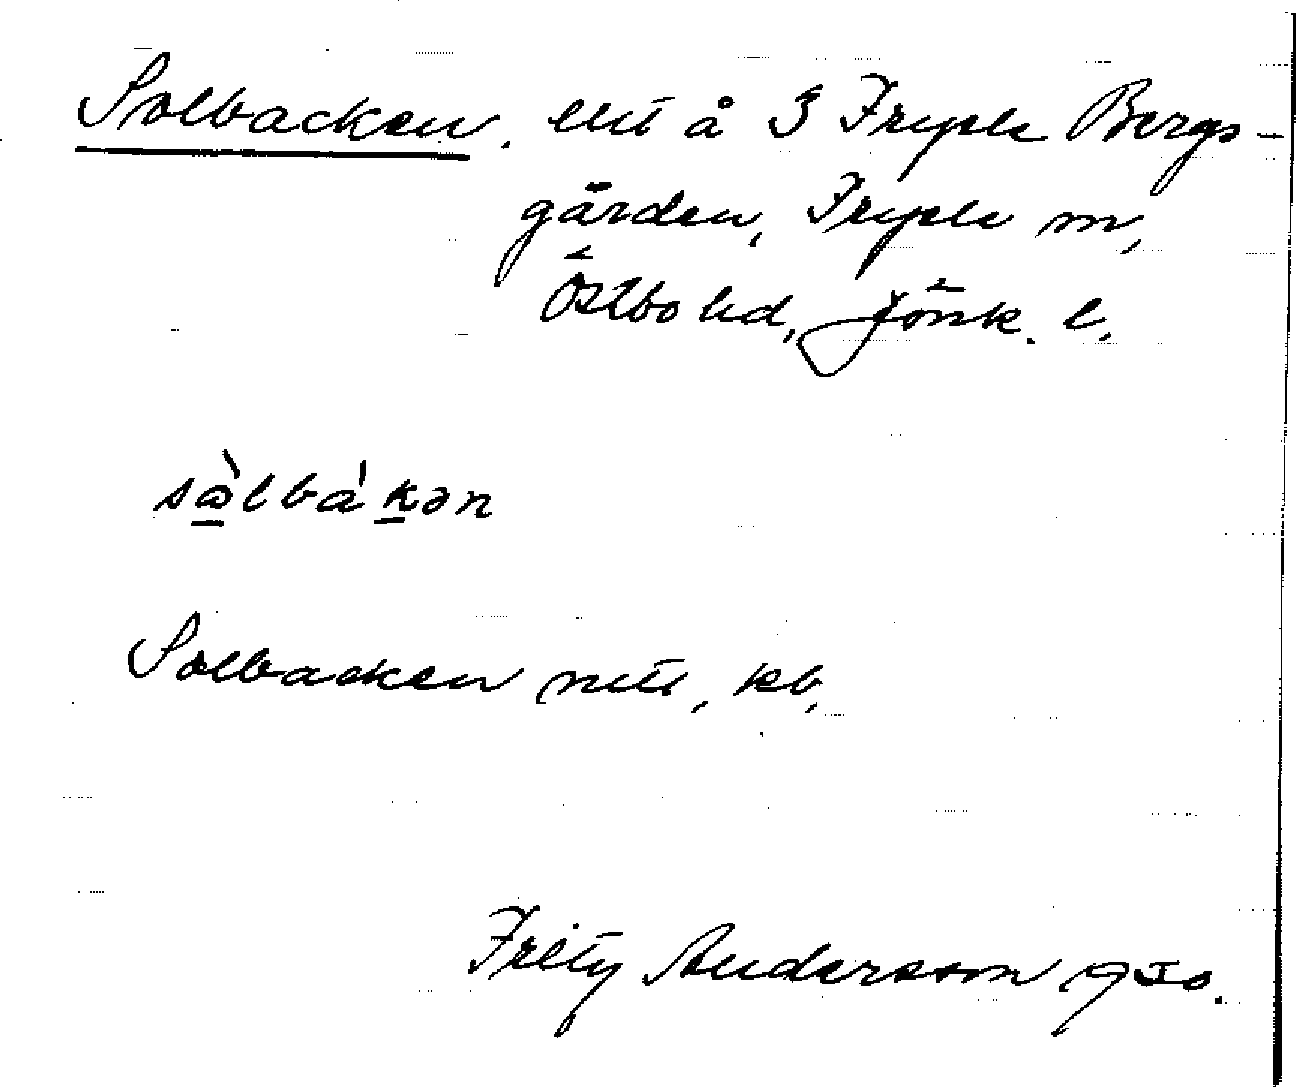 Solbacken, lht å 3 Fryele Bergs-
gården, Fryele sn,
Östbo hd, Jönk. l.
sàlbá'kən
Solbacken kb,
Fritz Andersson 1930.